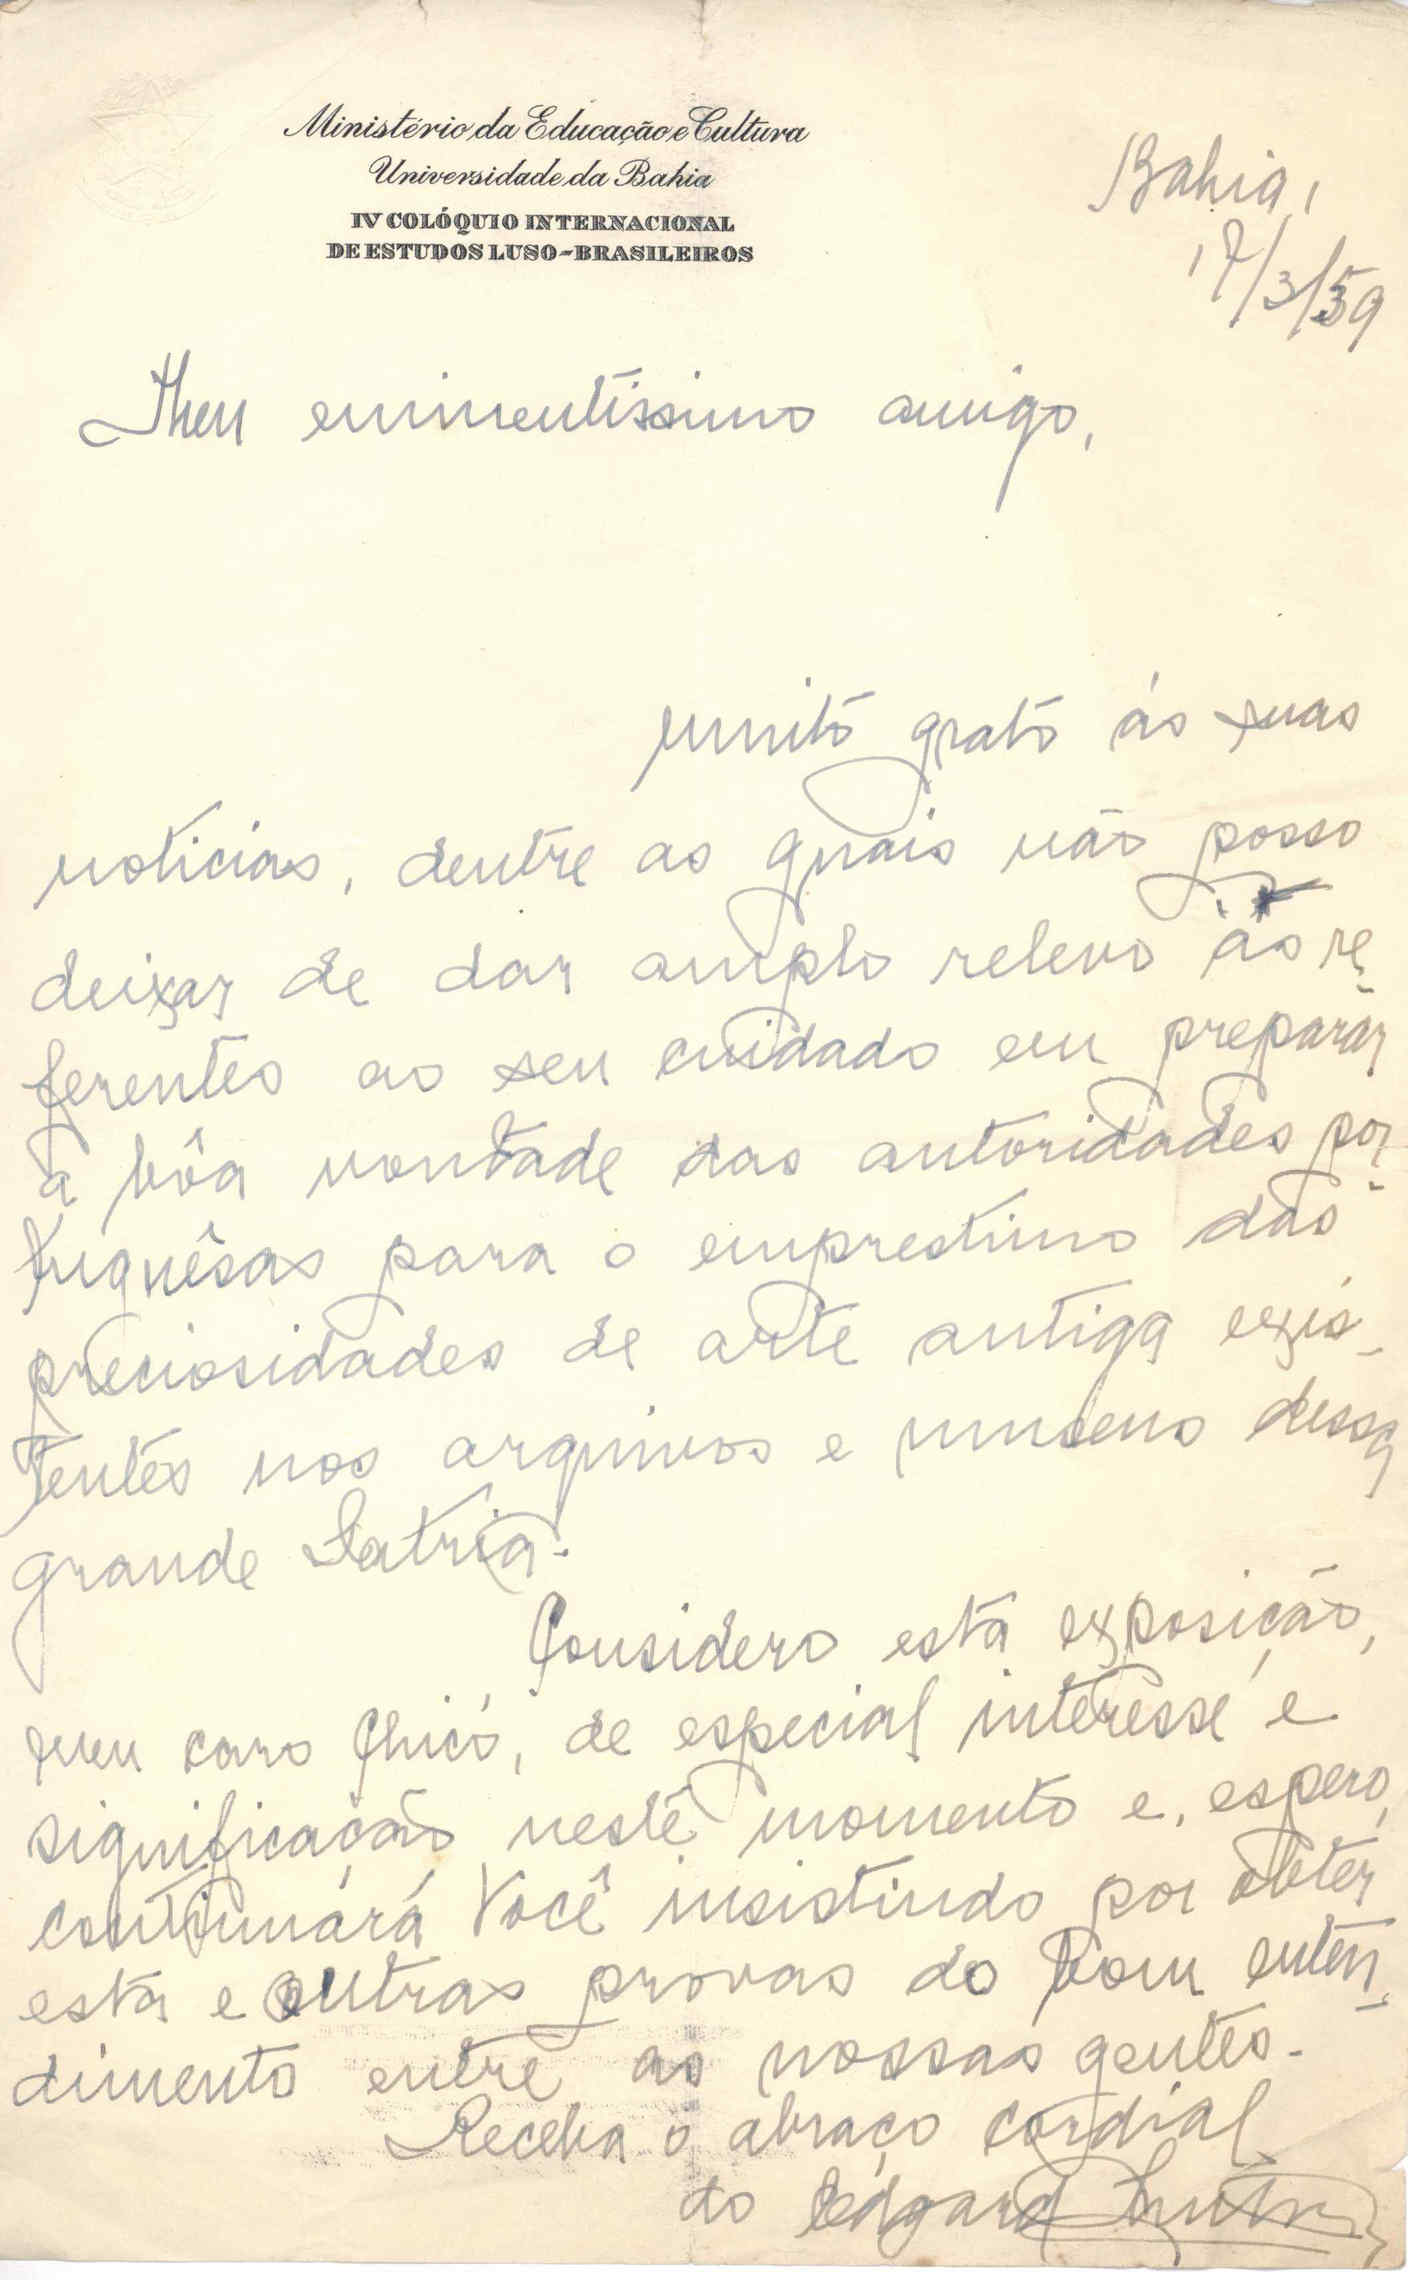 Ministério da Educação e Cultura
Universidade da Bahia
IV COLÓQUIO INTERNACIONAL
DE ESTUDOS LUSO-BRASILEIROS
Bahia,
17/3/59
Meu eminentissimo amigo,
muito grato ás suas
noticias, dentre as quais não posso
deixar de dar amplo relevo às re-
ferentes ao seu cuidado em preparar
a bôa vontade das autoridades por-
tuguêsas para o emprestimo das
preciosidades de arte antiga exis-
tentes nos arquivos e museus dessa
grande Patria.
Considero esta exposição,
meu caro Chicó, de especial interesse e
significação neste momento e, espero,
continuará Você insistindo por obter
esta e outras provas do bom enten-
dimento entre as nossas gentes.
Receba o abraço cordial
do Edgard Santos